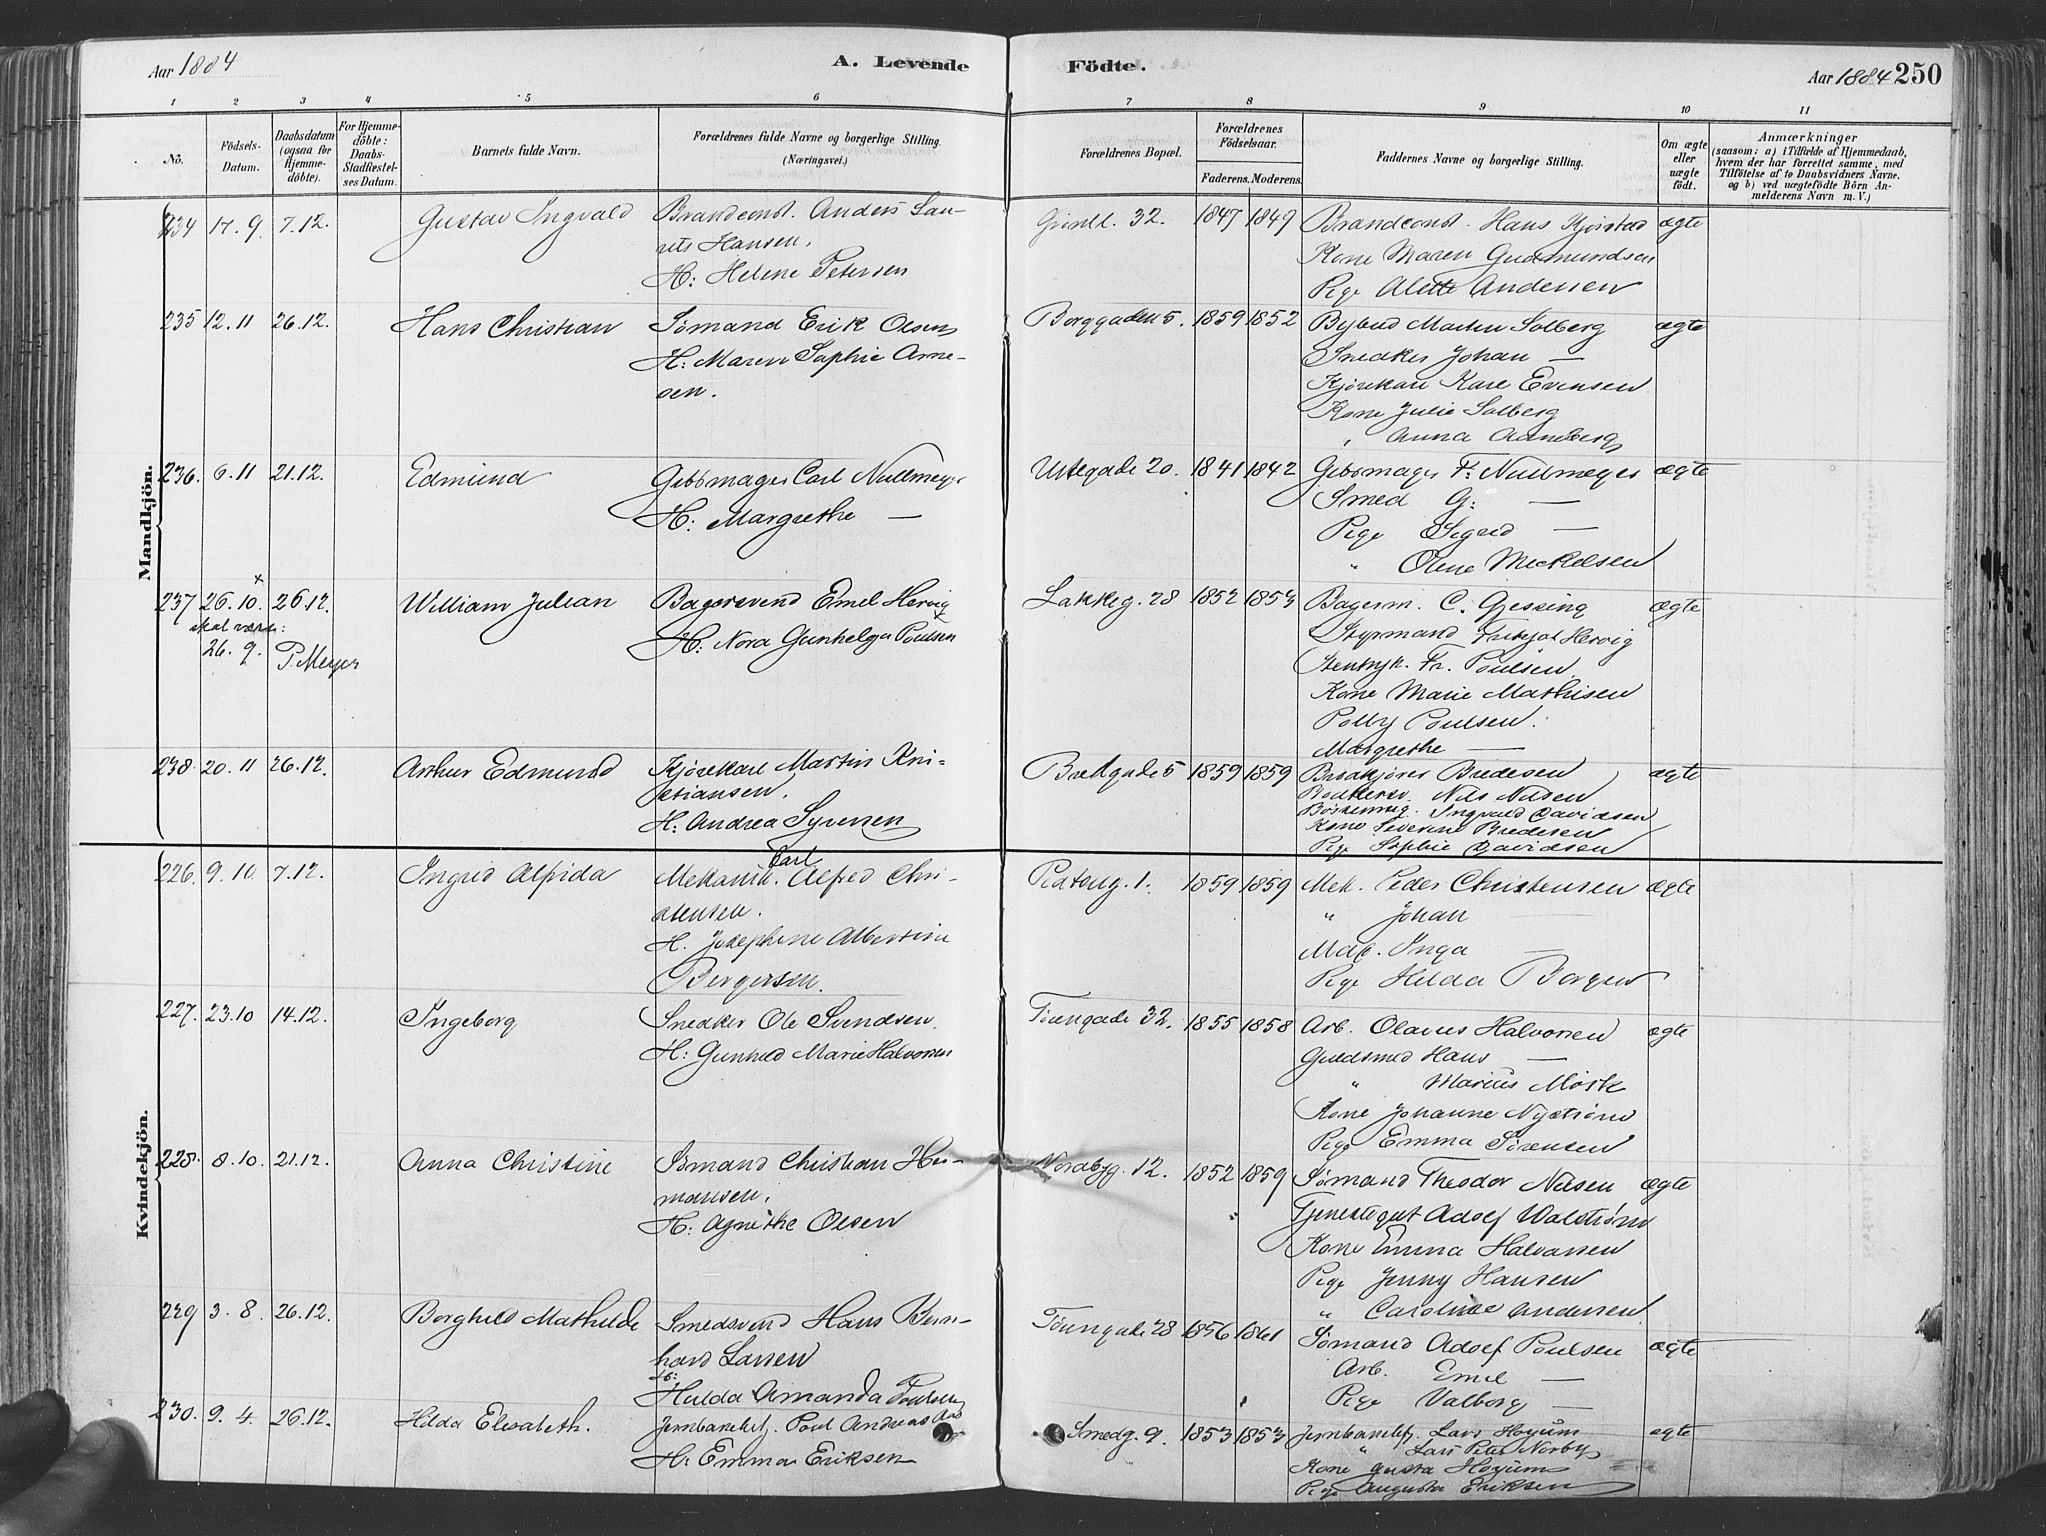 Aar 1884
A. Levende Födte.
Aar 1884 250
1 2 3 4 5 6 7 8 9 10 11
No.
Födsels-Datum.
Daabsdatum (ogsaa for Hjemme-döbte).
For Hjemme-döbte: Daabs-Stadfæstel-ses Datum.
Barnets fulde Navn.
Forældrenes fulde Navne og borgerlige Stilling. (Næringsvei.)
Forældrenes Bopæl.
Forældrenes Födselsaar.
Faderens. Moderens.
Faddernes Navne og borgerlige Stilling.
Om ægte eller uægte födt.
Anmærkninger
(saasom: a) i Tilfælde af Hjemmedaab, hvem der har forrettet samme, med Tilföielse af to Daabsvidners Navne, og b) ved uægtefödte Börn Anmelderens Navn m. V.)
Mandkjön.
234 17.9. 7.12. Gustav Ingvald Brandconst. Anders Lau- 32. 1847 1849 Brandconst. Hans Kjørstad ægte
rits Hansen. Kone Maren Gudmundsen
H: Helene Petersen Pige Alette Andersen
235 12.11 26.12. Hans Christian Sømand Erik Olsen Borggaden 5. 1859 1852 Bybud Martin Solberg ægte
H: Maren Sophie Arne- Snedker Johan —
sen. Kjørekarl Karl Evensen
Kone Julie Solberg
" Anna Aaneberg
236. 6.11 21.12. Edmund Gibsmager Carl Nullmeyer Urtegade 20. 1841 1842 Gibsmager F. Nullmeyer ægte
H: Margrethe — Smed G: —
Pige Sigrid —
" Oline Mickelsen
237 26.10. × 26.12. William Julian Bagersvend Emil Hervig Lakkeg. 28 1852 1853 Bagerm. C. Gjessing ægte
skal være: H: Nora Gunhelga Poulsen Styrmand Fritjof Hervig
26.9. P. Meyer Fr. Poulsen
Kone Marie Mathisen
Polly Poulsen.
Margrethe —
238. 20.11 26.12. Arthur Edmund Kjørekarl Martin Kri- Bredgade 5 1859 1859 Bredesen ægte
stiansen. Nils Nilsen
H: Andrea Syversen Ingvald Davidsen
Kone Severine Bredesen
Pige Sophie Davidsen
Kvindekjön.
226. 9.10. 7.12. Ingrid Alfrida Mekanik. Carl Alfred Chri- Platoug. 1. 1859 1859 Mek. Peder Christensen ægte
stensen. " Johan —
H. Josephine Albertine Mad. Inga —
Bergersen. Pige Hilda Borgen
227. 23.10 14.12. Ingeborg Snedker Ole Svendsen. Tøiengade 32. 1855 1858 Arb. Olaus Halvorsen ægte
H: Gunhild Marie Halvorsen Guldsmed Hans —
" Marius Mørk
Kone Johanne Nystrøm
Pige Emma Sørensen
228. 8.10. 21.12. Anna Christine Sømand Christian Her- Nordbyg. 12. 1852 1859 Sømand Theodor Nilsen ægte
mansen. Tjenestegut Adolf Walstrøm
H: Agnethe Olsen Kone Emma Halvorsen
Pige Jenny Hansen
" Caroline Andersen
229 3.8. 26.12. Borghild Mathilde Smedsvend Hans Bern- Tøiengade 28 1856 1861 Sømand Adolf Poulsen ægte
hard Larsen Arb. Emil —
H: Hulda Amanda Poulsen Pige Valborg —
230. 9.4. 26.12. Hilda Elisabeth. Jernbanebetj. Poul Andreas Aas Smedg. 9. 1853 1853 Jernbanebetj. Lars Høyum ægte
H: Emma Eriksen " Lars Peter Norby
Kone Gusta Høyum
Pige Augusta Eriksen